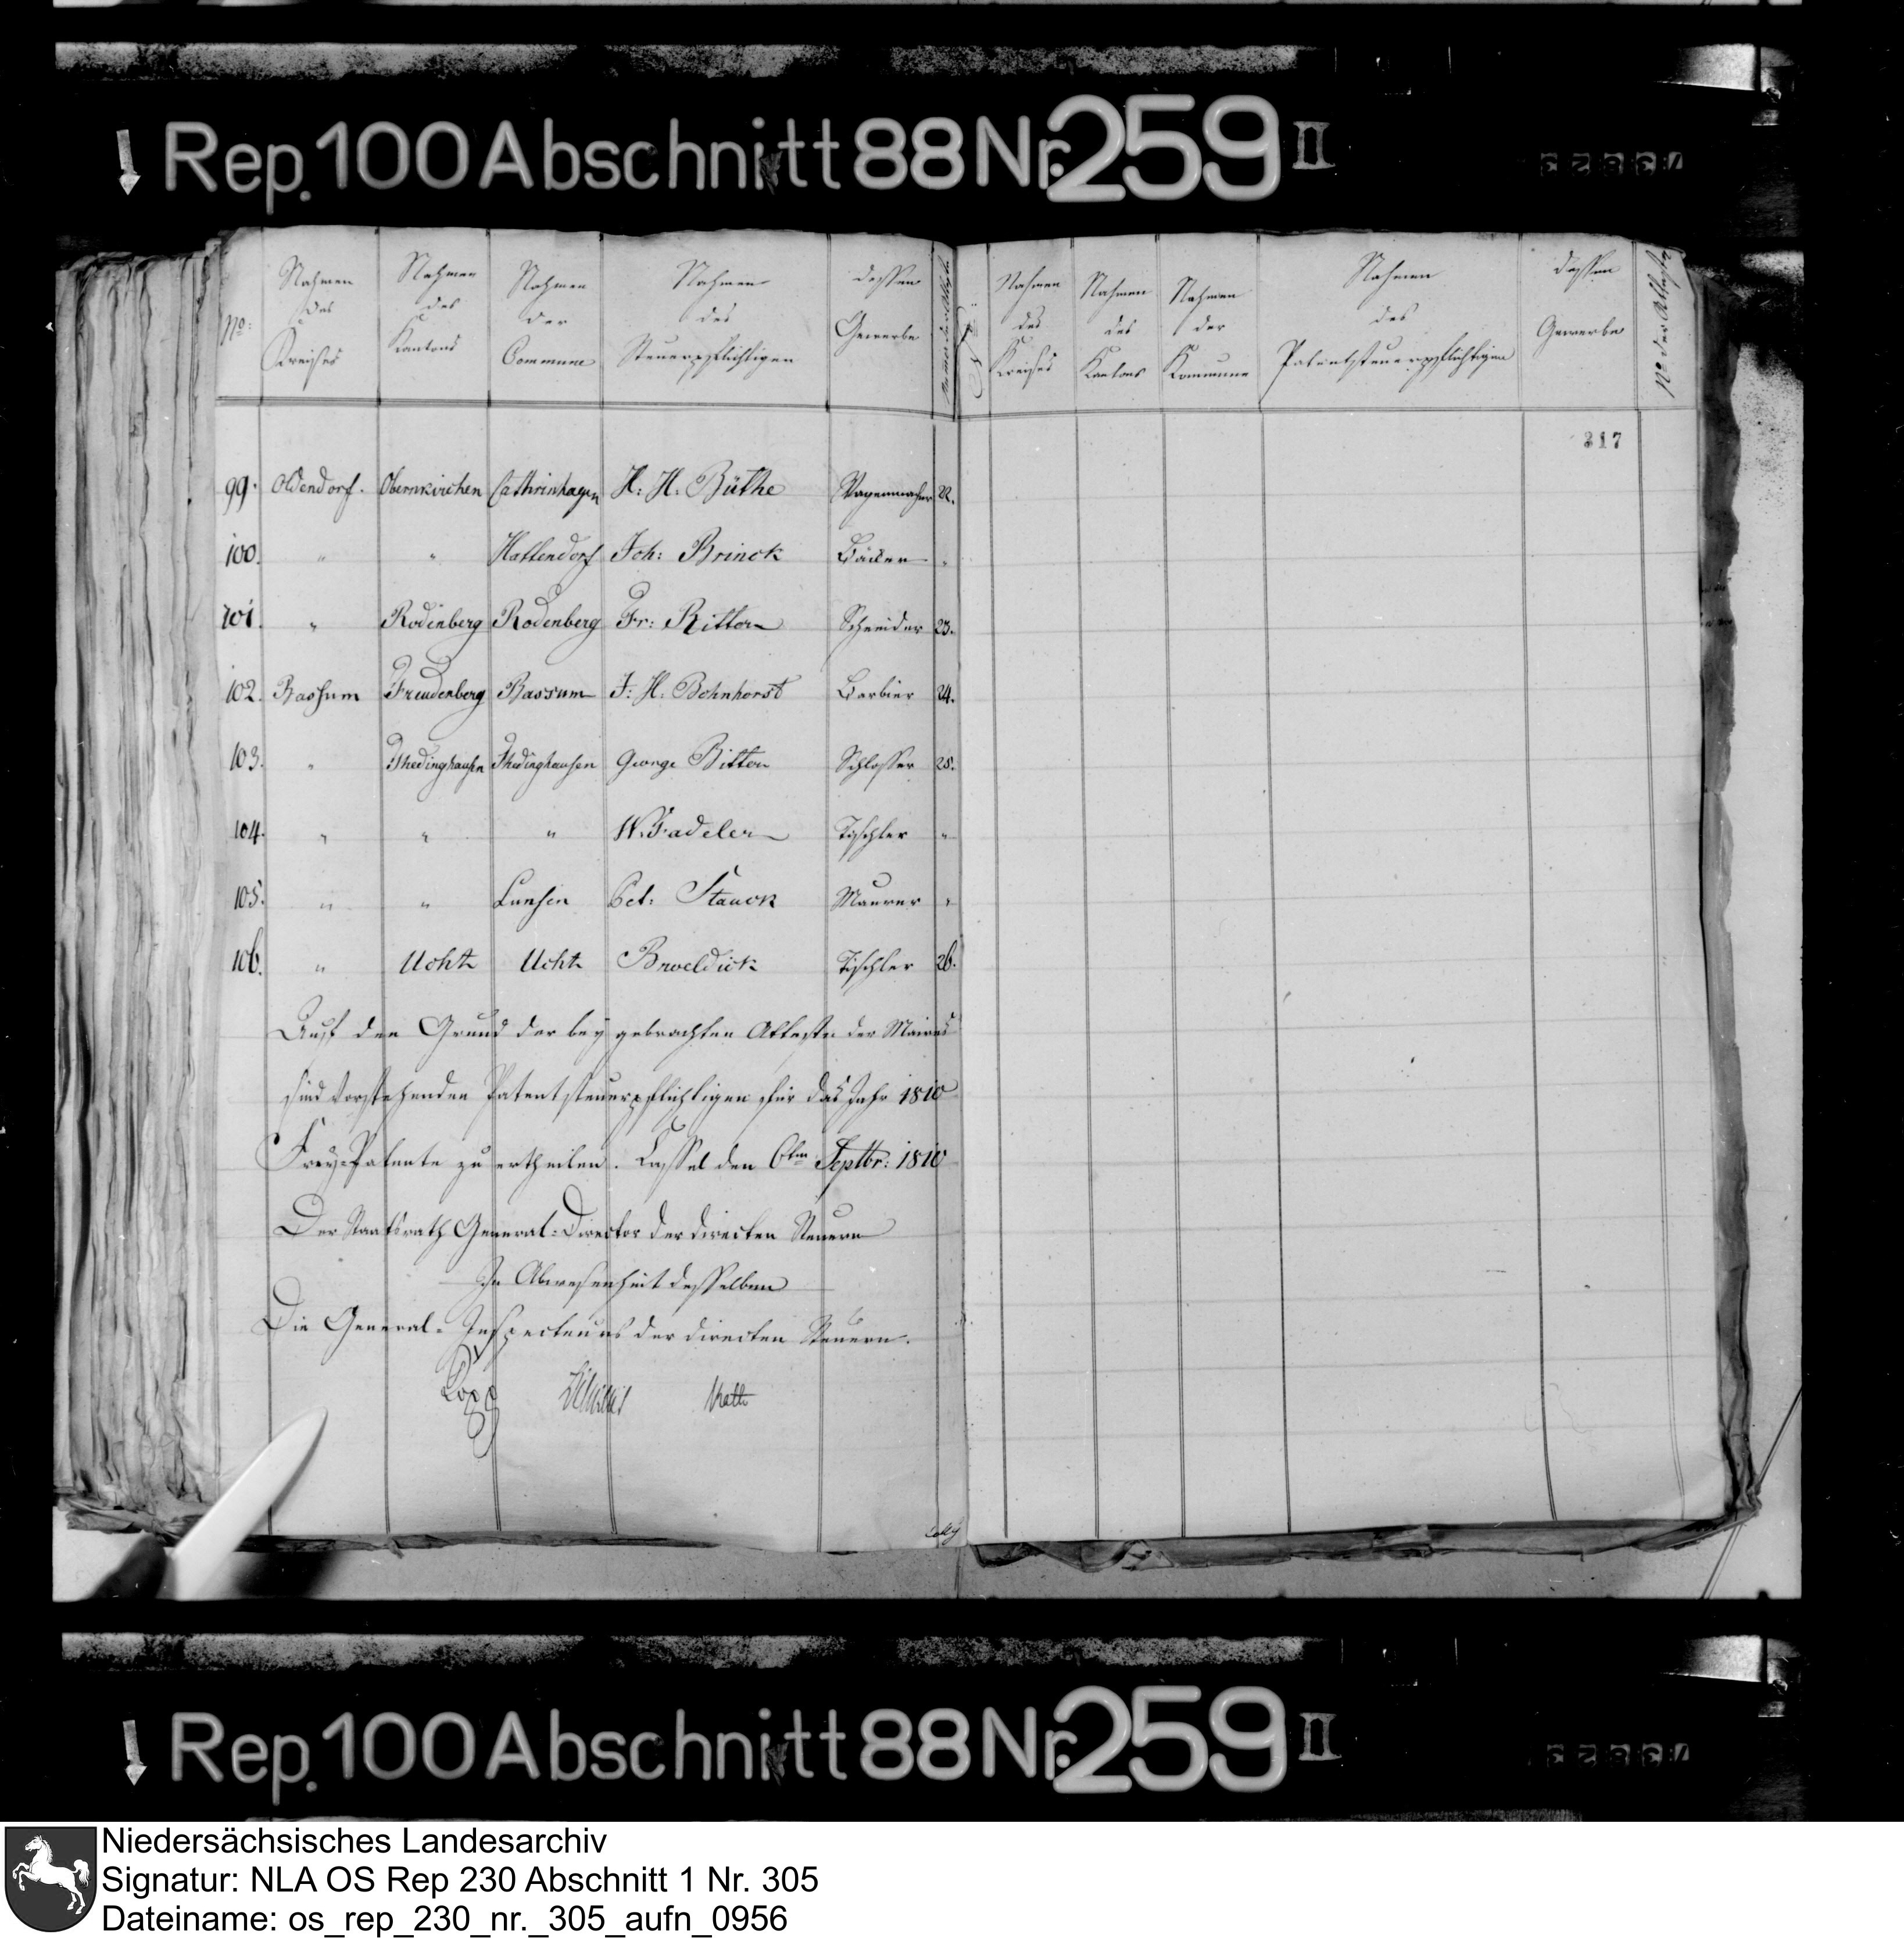 Rep. 100 Abschnitt 88 Nr. 259 II
No: Nahmen des Kreises Nahmen des Kantons Nahmen der Commune Nahmen des Steuerpflichtigen dessen Gewerbe
Nahmen des Kreises Nahmen des Kantons Nahmen der Kommune Nahmen des Patentsteuerpflichtigen dessen Gewerbe No der Atteste
317
99. Oldendorf. Obernkirchen Cathrinhagen H: H: Büthe Wagenmacher 22.
100. " " Hattendorf Joh: Brinck Bäcker "
101. " Rodenberg Rodenberg Fr: Ritter Schneider 23.
102. Bassum Freudenberg Bassum F: H: Bohnhorst Barbier 24.
103. " Thedinghausen Thedinghausen George Bitter Schlosser 25.
104. " " " W. Fadeler Tischler "
105. " " Lunsen Pet: Stauck Maurer "
106. " Uchte Uchte Broeldick Tischler 26.
Auf den Grund der bey gebrachten Atteste der Maires
sind vorstehenden Patentsteuerpflichtigen für das Jahr 1810
Frey-Patente zu ertheilen. Cassel den 6ten Septbr: 1810
Der Staatsrath General-Director der directen Steuern
In Abwesenheit desselben
Die General-Inspecteurs der directen Steuern.
Rep. 100 Abschnitt 88 Nr. 259 II
Niedersächsisches Landesarchiv
Signatur: NLA OS Rep 230 Abschnitt 1 Nr. 305
Dateiname: os_rep_230_nr._305_aufn_0956